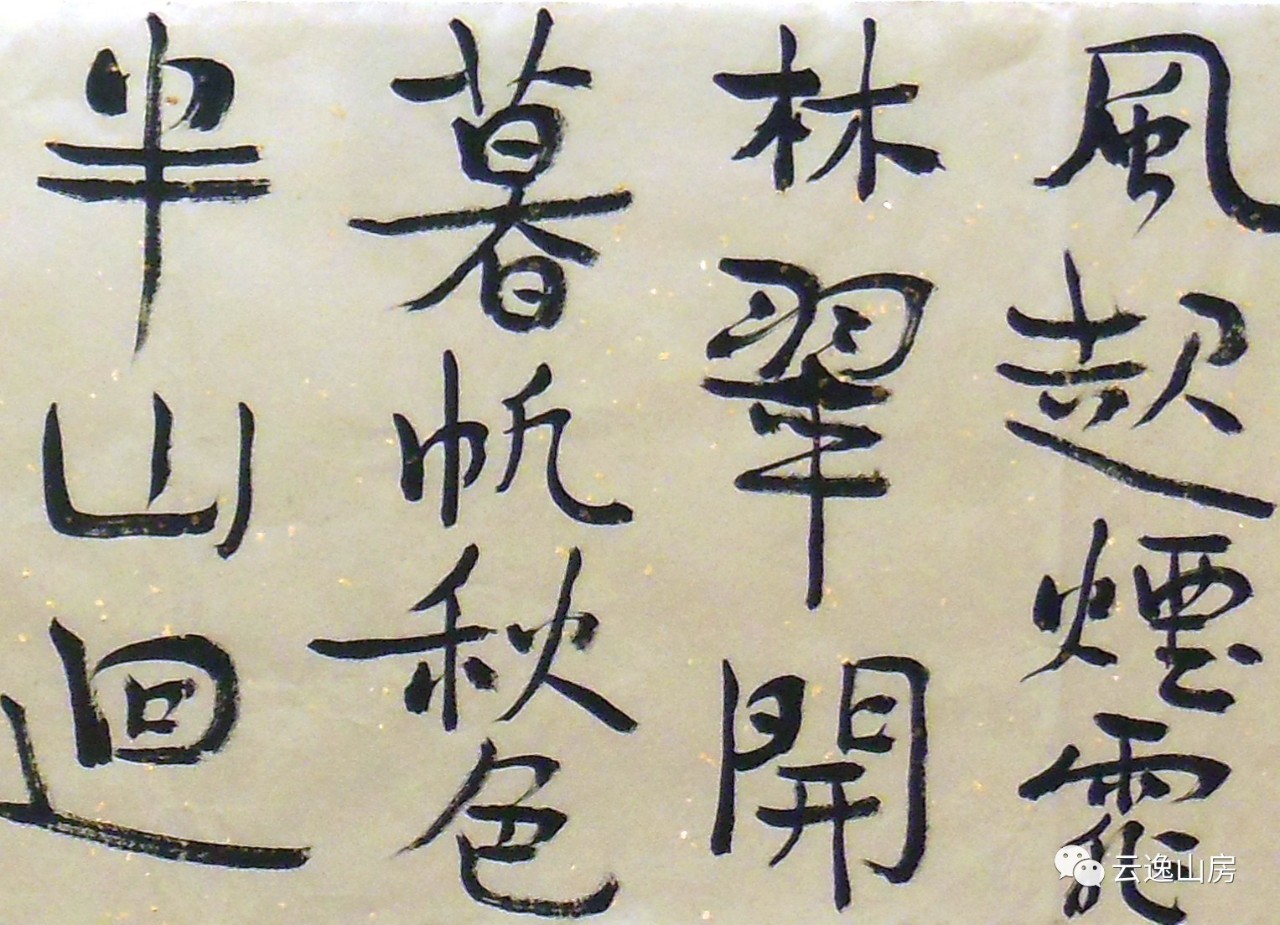 風起煙霏
林翠開
暮帆秋色
半山迴
云逸山房